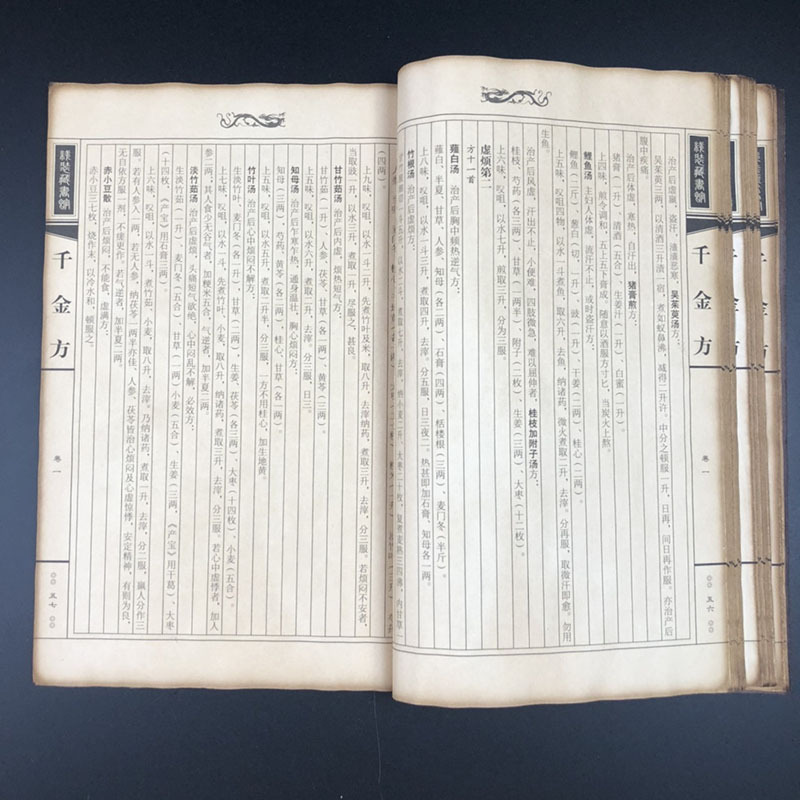 线装藏书馆
千金方
卷一
五六
治产后虚羸，盗汗，濇濇恶寒，吴茱萸汤方：
吴茱萸三两，以清酒三升渍一宿，煮如蚁鼻沸，减得二升许，中分之顿服一升，日再，间日再作服。亦治产后
腹中疾
治产后体虚，寒热，自汗出，猪膏煎方：
猪膏（一升）、清酒（五合）、生姜汁（一升）、白蜜（一升）。
上四味，煎令调和，五上五下膏成。随意以酒服方寸匕，当炭火上熬。
鲤鱼汤 主妇人体虚，流汗不止，或时盗汗方：
鲤鱼（二斤）、葱白（切，一升）、豉（一升）、干姜（二两）、桂心（二两）。
上五味，㕮咀四物，以水一斗煮鱼，取六升，去鱼，纳诸药，微火煮取二升，去滓。分再服，取微汗即愈。勿用
生鱼。
治产后风虚，汗出不止，小便难，四肢微急，难以屈伸者，桂枝加附子汤方：
桂枝、芍药（各三两）、甘草（一两半）、附子（二枚）、生姜（三两）、大枣（十二枚）。
上六味，㕮咀，以水七升，煎取三升，分为三服。
虚烦第二
方十一首
薤白汤 治产后胸中烦热逆气方：
薤白、半夏、甘草、人参、知母（各二两）、石膏（四两）、栝楼根（三两）、麦门冬（半斤）。
上八味，㕮咀，以水一斗三升，煮取四升，去滓。分五服，日三夜二。热甚即加石膏、知母各一两。
竹根汤 治产后虚烦方：
（四两）。
上六味，㕮咀，以水一斗二升，先煮竹叶及米，取八升，去滓纳诸药，煮取三升，去滓，分三服。若烦闷不安者，
当取豉一升，以水三升，煮取一升，尽服之，甚良。
甘竹茹汤 治产后内虚，烦热短气方：
甘竹茹（一升）、人参、茯苓、甘草（各二两）、黄芩（三两）。
上五味，㕮咀，以水六升，煮取二升，去滓，分三服，日三。
知母汤 治产后乍寒乍热，通身温壮，胸心烦闷方：
知母（三两）、芍药、黄芩（各二两）、桂心、甘草（各一两）。
上五味，㕮咀，以水五升，煮取二升半，分三服。一方不用桂心，加生地黄。
竹叶汤 治产后心中烦闷不解方：
生淡竹叶、麦门冬（各一升）、甘草（二两）、生姜、茯苓（各三两）、大枣（十四枚）、小麦（五合）。
上七味，㕮咀，以水一斗，先煮竹叶、小麦，取八升，纳诸药，煮取三升，去滓，分三服。若心中虚悸者，加人
参二两。其人食少无谷气者，加粳米五合。气逆者，加半夏二两。
淡竹茹汤 治产后虚烦，头痛短气欲绝，心中闷乱不解，必效方：
生淡竹茹（一升）、麦门冬（五合）、甘草（一两）小麦（五合）、生姜（三两，《产宝》用干葛）、大枣
（十四枚，《产宝》用石膏三两）。
上六味，㕮咀，以水一斗，煮竹茹、小麦，取八升，去滓。乃纳诸药，煮取一升，去滓，分二服，羸人分作三
服。若有人参入一两，若无人参，纳茯苓一两半亦佳，人参、茯苓皆治心烦闷及心虚惊悸，安定精神，有则为良，
无自依方服一剂，不瘥更作。若气逆者，加半夏二两。
赤小豆散 治产后烦闷，不能食，虚满方：
赤小豆三七枚，烧作末，以冷水和，顿服之。
线装藏书馆
千金方
卷一
五七